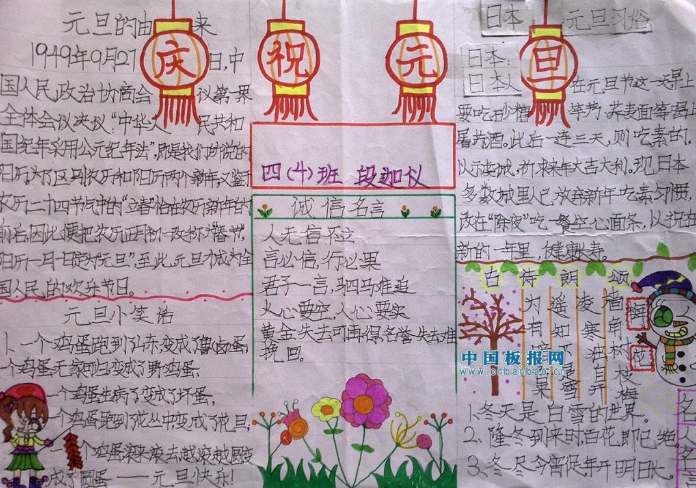 元旦的由来
1949年9月27日,中
国人民政治协商会议第一界
全体会议决议:"中华人民共和
国纪年采用公元纪年法",即是我们所说的
阳历,为了区别农历和阳历两个新年,又鉴于
农历二十四节气中的"立春"恰在农历新年的
前后,因此便把农历正月初一改称为"春节",
阳历一月一日定为"元旦",至此,元旦才成为全
国人民的欢乐节日。
元旦小笑话
1.一个鸡蛋跑到山东,变成了鲁卤蛋,
一个鸡蛋无家可归变成了野鸡蛋,
一个鸡蛋生病了变成了坏蛋,
一个鸡蛋跑到花丛中变成了花旦,
一个鸡蛋滚来滚去越滚越圆变
成了圆蛋——元旦快乐!
庆祝元旦
四(4)班 段
诚信名言
人无信不立
言必信,行必果
君子一言,驷马难追
火心要空,人心要实
黄金失去可再得,名誉失去难
挽回。
日本元旦习俗
日本:
日本人在元旦节这一天早
要吃
等芳,荞麦面等,喝
屠苏酒,此后一连三天,则吃素
以示虔诚,祈求来年大吉大利,现日本
多数城里人已放弃新年吃素习惯,
改在"除夜"吃一餐空心面条,以祝
新的一年里,健康长寿。
古诗朗颂
墙角数枝梅
凌寒独自开
遥知不是雪
为有暗香来
梅花
1.冬天是白雪的世界。
2.隆冬到来时,百花即已绝
3.冬尽今宵促,年开明日长。
名人名
中国板报网